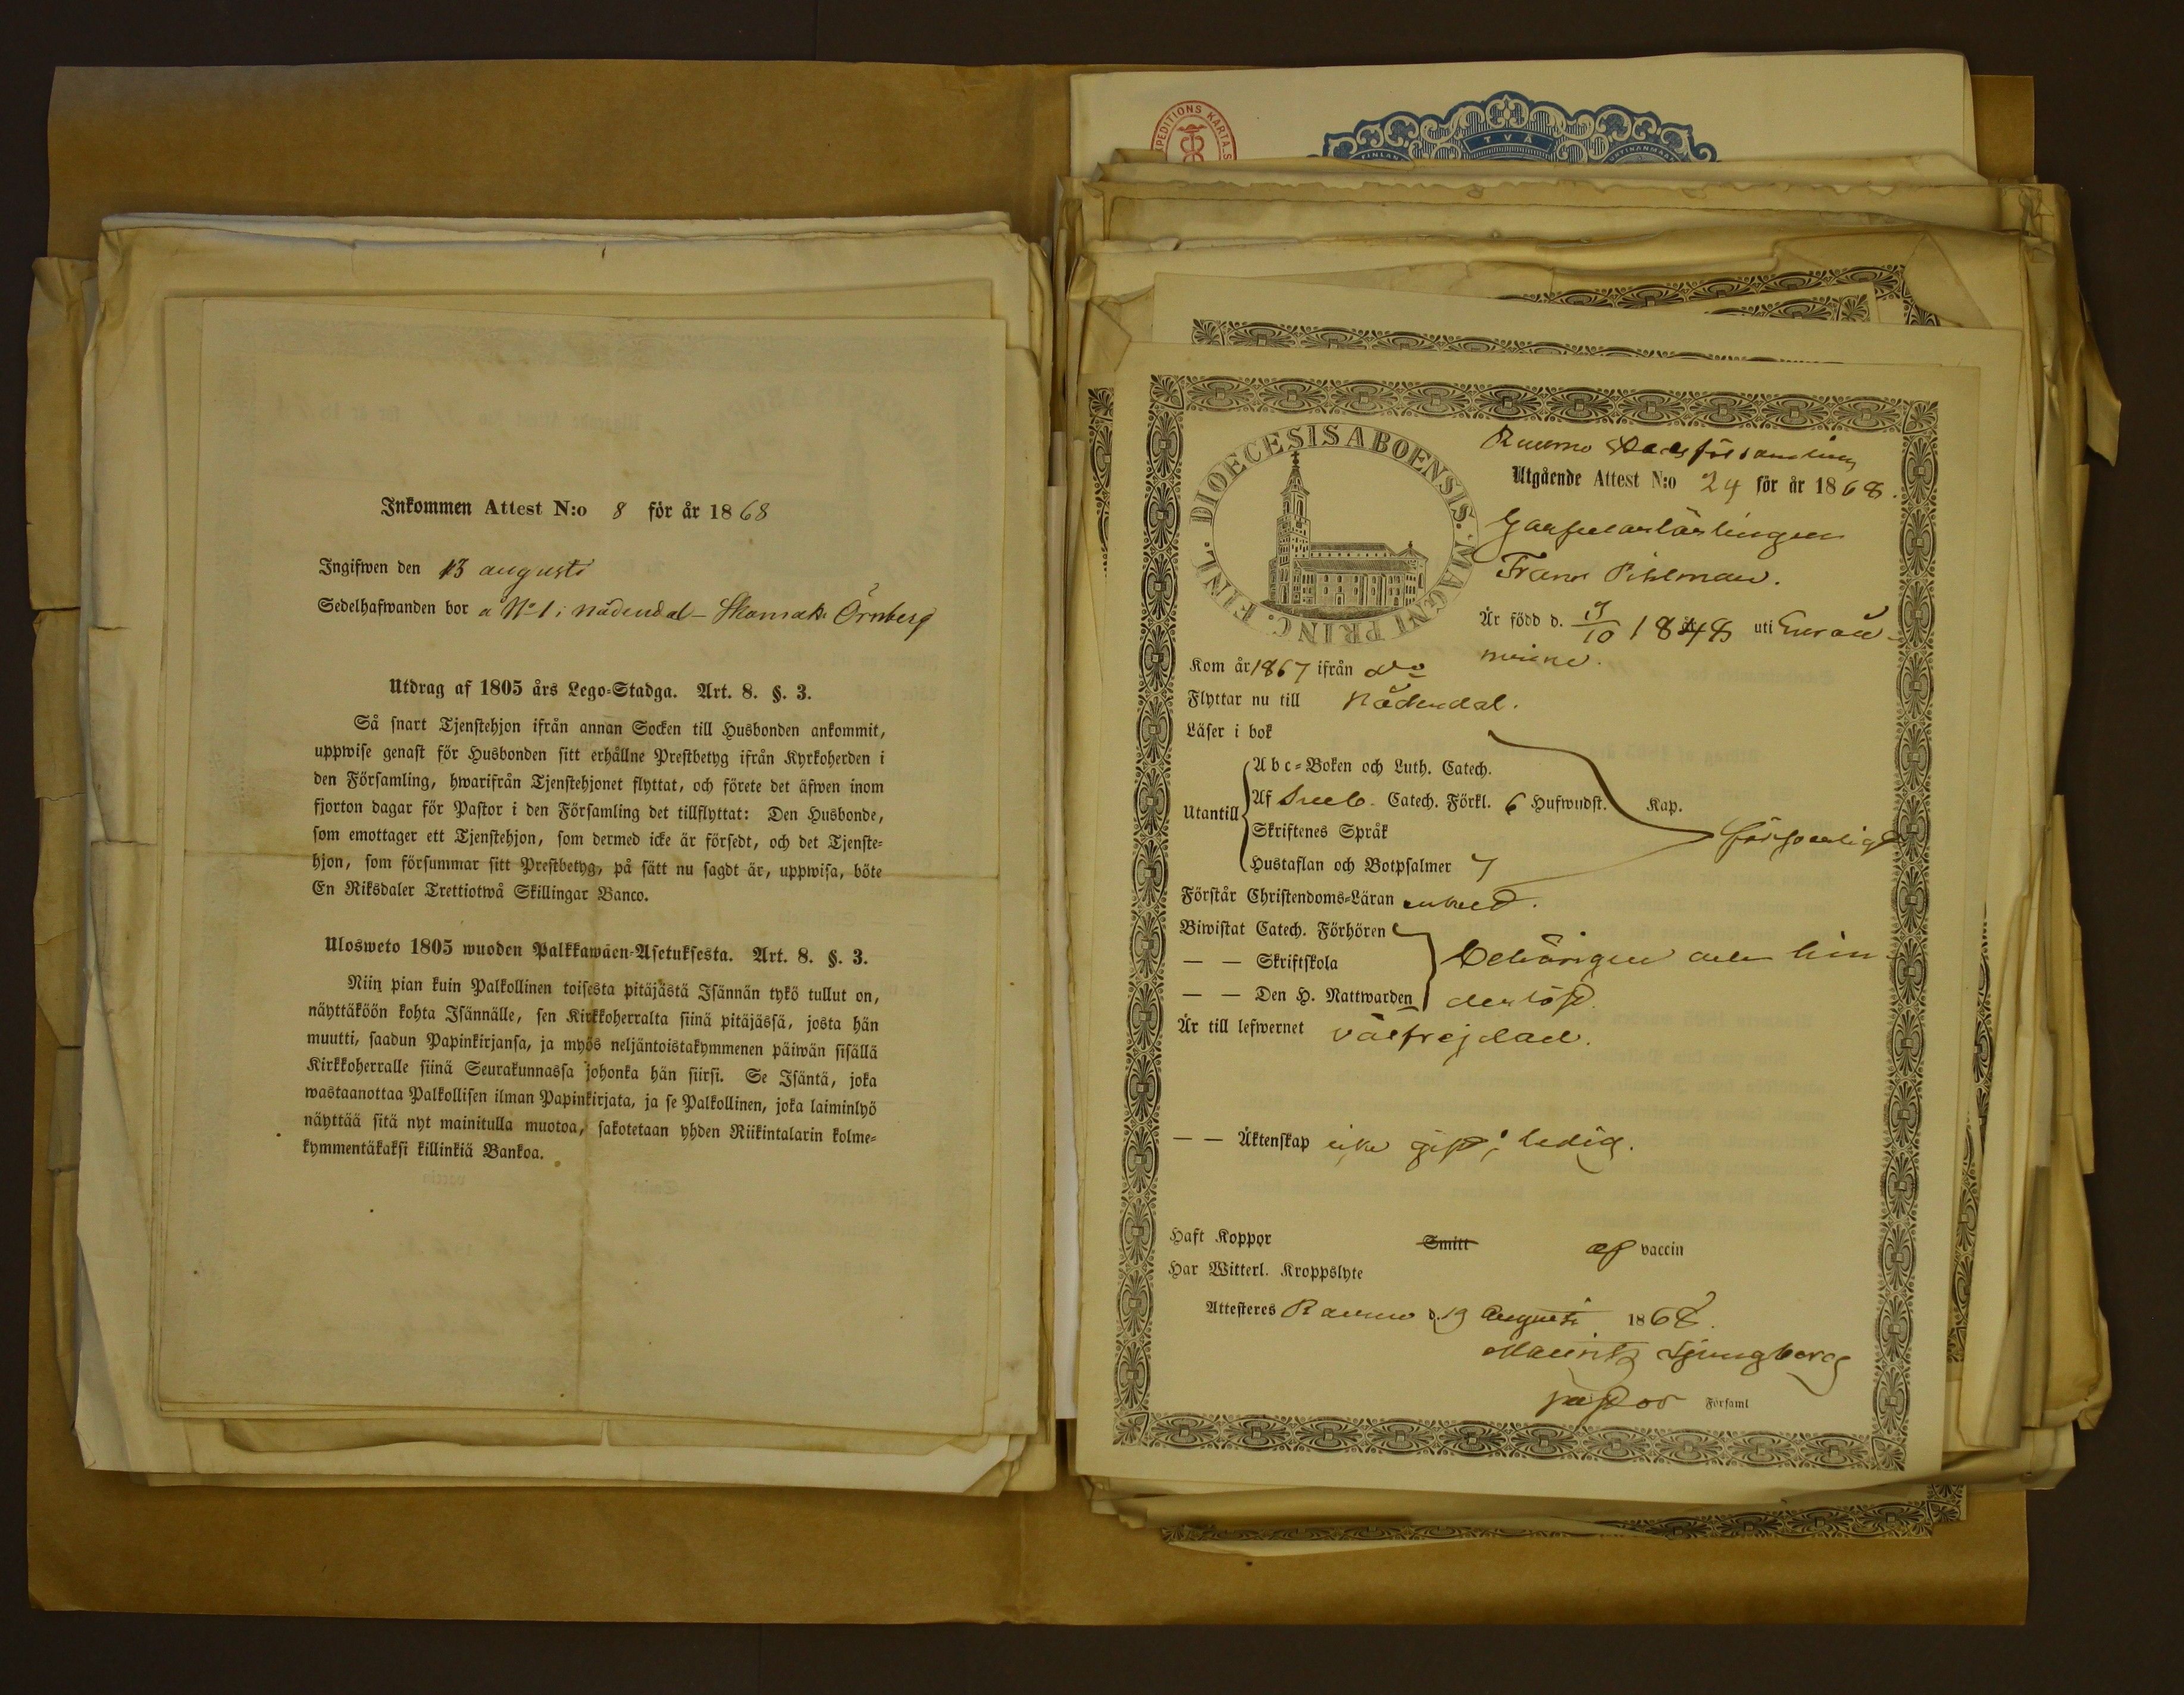 Inkommen Attest N:o 8 för år 1868
Ingifwen den 13 augusti
Sedelhafwanden bor å No 1 i nådendal – Skomak. Örnberg
Utdrag af 1805 års Lego-Stadga. Art. 8. §. 3.
Så snart Tjenstehjon ifrån annan Socken till Husbonden ankommit,
uppwise genast för Husbonden sitt erhållne Prestbetyg ifrån Kyrkoherden i
den Församling, hwarifrån Tjenstehjonet flyttat, och förete det äfwen inom
fjorton dagar för Pastor i den Församling det tillflyttat: Den Husbonde,
som emottager ett Tjenstehjon, som dermed icke är försedt, och det Tjenste-
hjon, som försummar sitt Prestbetyg, på sätt nu sagdt är, uppwisa, böte
En Riksdaler Trettiotwå Skillingar Banco.
Ulosweto 1805 wuoden Palkkawäen-Asetuksesta. Art. 8. §. 3.
Niin pian kuin Palkollinen toisesta pitäjästä Isännän tykö tullut on,
näyttäköön kohta Isännälle, sen Kirkkoherralta siinä pitäjässä, josta hän
muutti, saadun Papinkirjansa, ja myös neljäntoistakymmenen päiwän sisällä
Kirkkoherralle siinä Seurakunnassa johonka hän siirsi. Se Isäntä, joka
wastaanottaa Palkollisen ilman Papinkirjata, ja se Palkollinen, joka laiminlyö
näyttää sitä nyt mainitulla muotoa, sakotetaan yhden Riikintalarin kolme-
kymmentäkaksi killinkiä Bankoa.
SPEDITIONS KARTA.S
TVÅ
FINLAN
DIOECESIS ABOENSIS. MAGNI PRINC. FINL.
Raumo Stads församling
Utgående Attest N:o 24 för år 1868.
Garfvarlärlingen
Frans Pihlman.
Är född d. 17/10 1848 uti Euraå
minne.
Kom år 1867 ifrån do
Flyttar nu till Nådendal.
Läser i bok
Abc-Boken och Luth. Catech.
Utantill Af Sveb. Catech. Förkl. 6 Hufwudst. Kap.
Skriftenes Språk försvarligt
Hustaflan och Botpsalmer 7
Förstår Christendoms-Läran enkelt.
Biwistat Catech. Förhören
— — Skriftskola behörigen och hin-
— — Den H. Nattwarden derlöst.
Är till lefwernet välfrejdad.
— — Äktenskap icke gift; ledig.
Haft Koppor Smitt af vaccin
Har Witterl. Kroppslyte
Attesteres Raumo d. 19 Augusti 1868.
Mauritz Ljungberg
pastor Församl